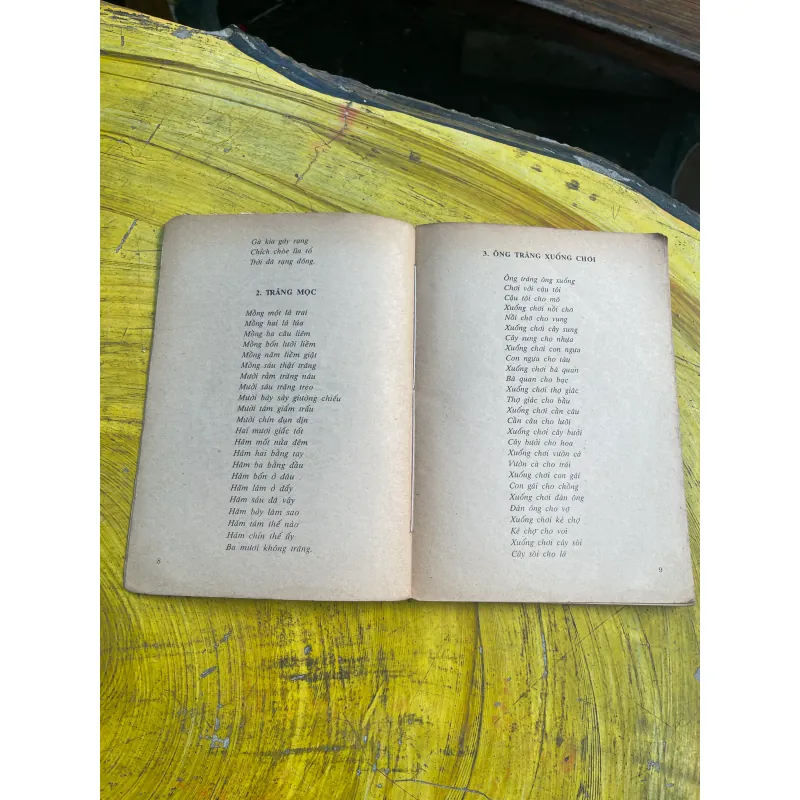 Gà kia gáy rang
Chích chòe lìa tổ
Trời đã rạng đông.
2. TRĂNG MỌC
Mồng một lá trai
Mồng hai lá lúa
Mồng ba câu liêm
Mồng bốn lưỡi liềm
Mồng năm liềm giật
Mồng sáu thật trăng
Mười rằm trăng náu
Mười sáu trăng treo
Mười bảy sảy giường chiếu
Mười tám giấm trấu
Mười chín dụn dịn
Hai mươi giấc tốt
Hăm mốt nửa đêm
Hăm hai bằng tay
Hăm ba bằng đầu
Hăm bốn ở đâu
Hăm lăm ở đấy
Hăm sáu đã vậy
Hăm bảy làm sao
Hăm tám thế nào
Hăm chín thế ấy
Ba mươi không trăng.
8
3. ÔNG TRĂNG XUỐNG CHƠI
Ông trăng ông xuống
Chơi với cậu tôi
Cậu tôi cho mõ
Xuống chơi nồi chõ
Nồi chõ cho vung
Xuống chơi cây sung
Cây sung cho nhựa
Xuống chơi con ngựa
Con ngựa cho tàu
Xuống chơi bà quan
Bà quan cho bạc
Xuống chơi thợ giác
Thợ giác cho bầu
Xuống chơi cần câu
Cần câu cho lưỡi
Xuống chơi cây bưởi
Cây bưởi cho hoa
Xuống chơi vườn cà
Vườn cà cho trái
Xuống chơi con gái
Con gái cho chồng
Xuống chơi đàn ông
Đàn ông cho vợ
Xuống chơi kẻ chợ
Kẻ chợ cho voi
Xuống chơi cây sòi
Cây sòi cho lá
9